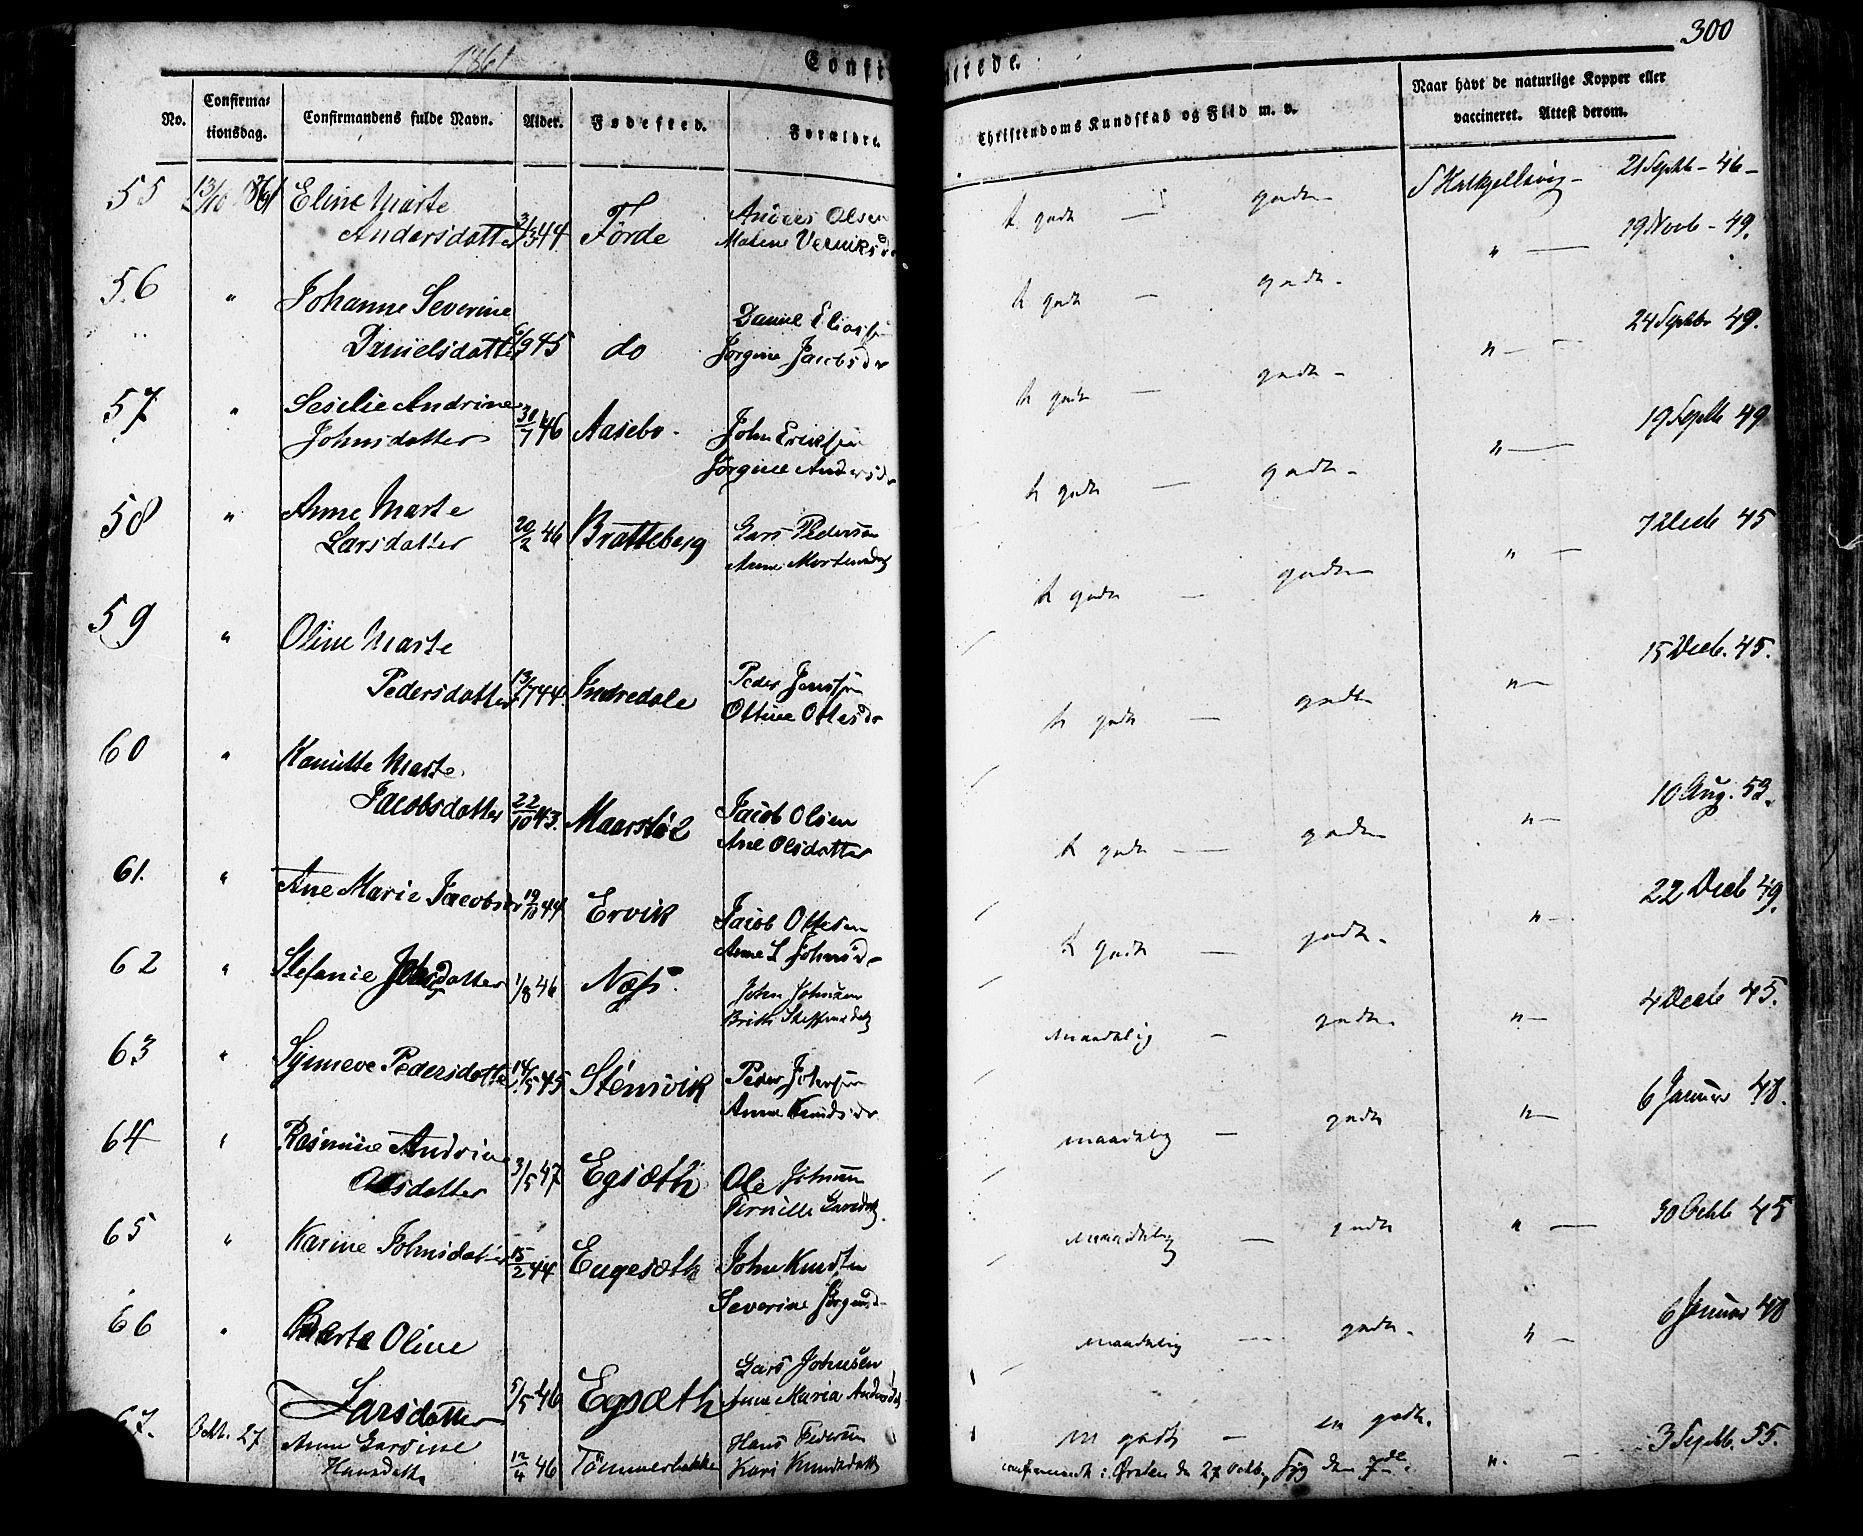 300
1861
Confir
merede.
No.
Confirma-
tionsdag.
Confirmandens fulde Navn.
Alder.
Fødested.
Forældre.
Christendoms Kundskab og Flid m. v.
Naar havt de naturlige Kopper eller
vaccineret. Attest derom.
55 13/10 1861 Eline Marte
Andersdatter 3/3 44 Förde
Andres Olsen
godt — godt 21 Septb - 46 -
56 " Johanne Severine
Danielsdatter 6/9 45 do
Daniel Eliassen
Jørgine Jacobsdr
godt — godt - " — 19 Novb - 49.
57 " Seselie Andrine
Johnsdatter 31/7 46 Aasebø -
John Ericksen
Jørgine Andersdr
godt — godt - " — 24 Septbr 49.
58 " Anne Marte
Larsdatter 20/2 46 Bratteberg
Lars Pedersen
Anne Mortensdat
godt — godt - " — 19 Septb 49
59 " Oline Marte
Pedersdatter 13/7 44. Indredale
Peder Jensen
Ottine Ottesdr
godt — godt " — 7 Decb 45
60 " Marte
Jacobsdatter 22/10 43. Maarstöl
Jacob Olsen
Ane Olsdatter
godt — godt " — 15 Decb. 45.
61. " Ane Marie Jacobsdr 19/10 44 Ervik
Jacob Ottesen
Anne L Johnsdr
godt — godt " — 10 Aug. 53.
62 " Stefanie Johnsdatter 1/8 46 Næss.
John Johnsen
Brithe Steffensdat
godt — godt - " — 22 Decb 49.
63 " Synneve Pedersdatter 14/5 45 Stensvik
Peder Johnsen
Anne Knudsdr
maadelig — godt " — 4 Decb 45.
64 " Rasmine Andrine
Olsdatter 3/5 47 Egsæth
Ole Johnsen
Pernille Larsdat
maadelig — godt " — 6 Januar 48.
65 " Karine Johnsdatter 15/2 44 Eugesæth
John Knudsen
Severine Jørgensd
maadelig — godt " — 30 Octb 45
66 " Berte Oline
Larsdatter 5/5 46 Egsæth
Lars Johnsen
Anne Maria Andersdat
maadelig — godt - " — 6 Januar 48
67. Octb. 27 Anne Larsine
Hansdatter 12/4 46 Tömmerbakke
Hans Pedersen
Kari Knudsdatter
m godt — en godt. " - 3 Septb. 55.
i Ørsten den 27 Octb,